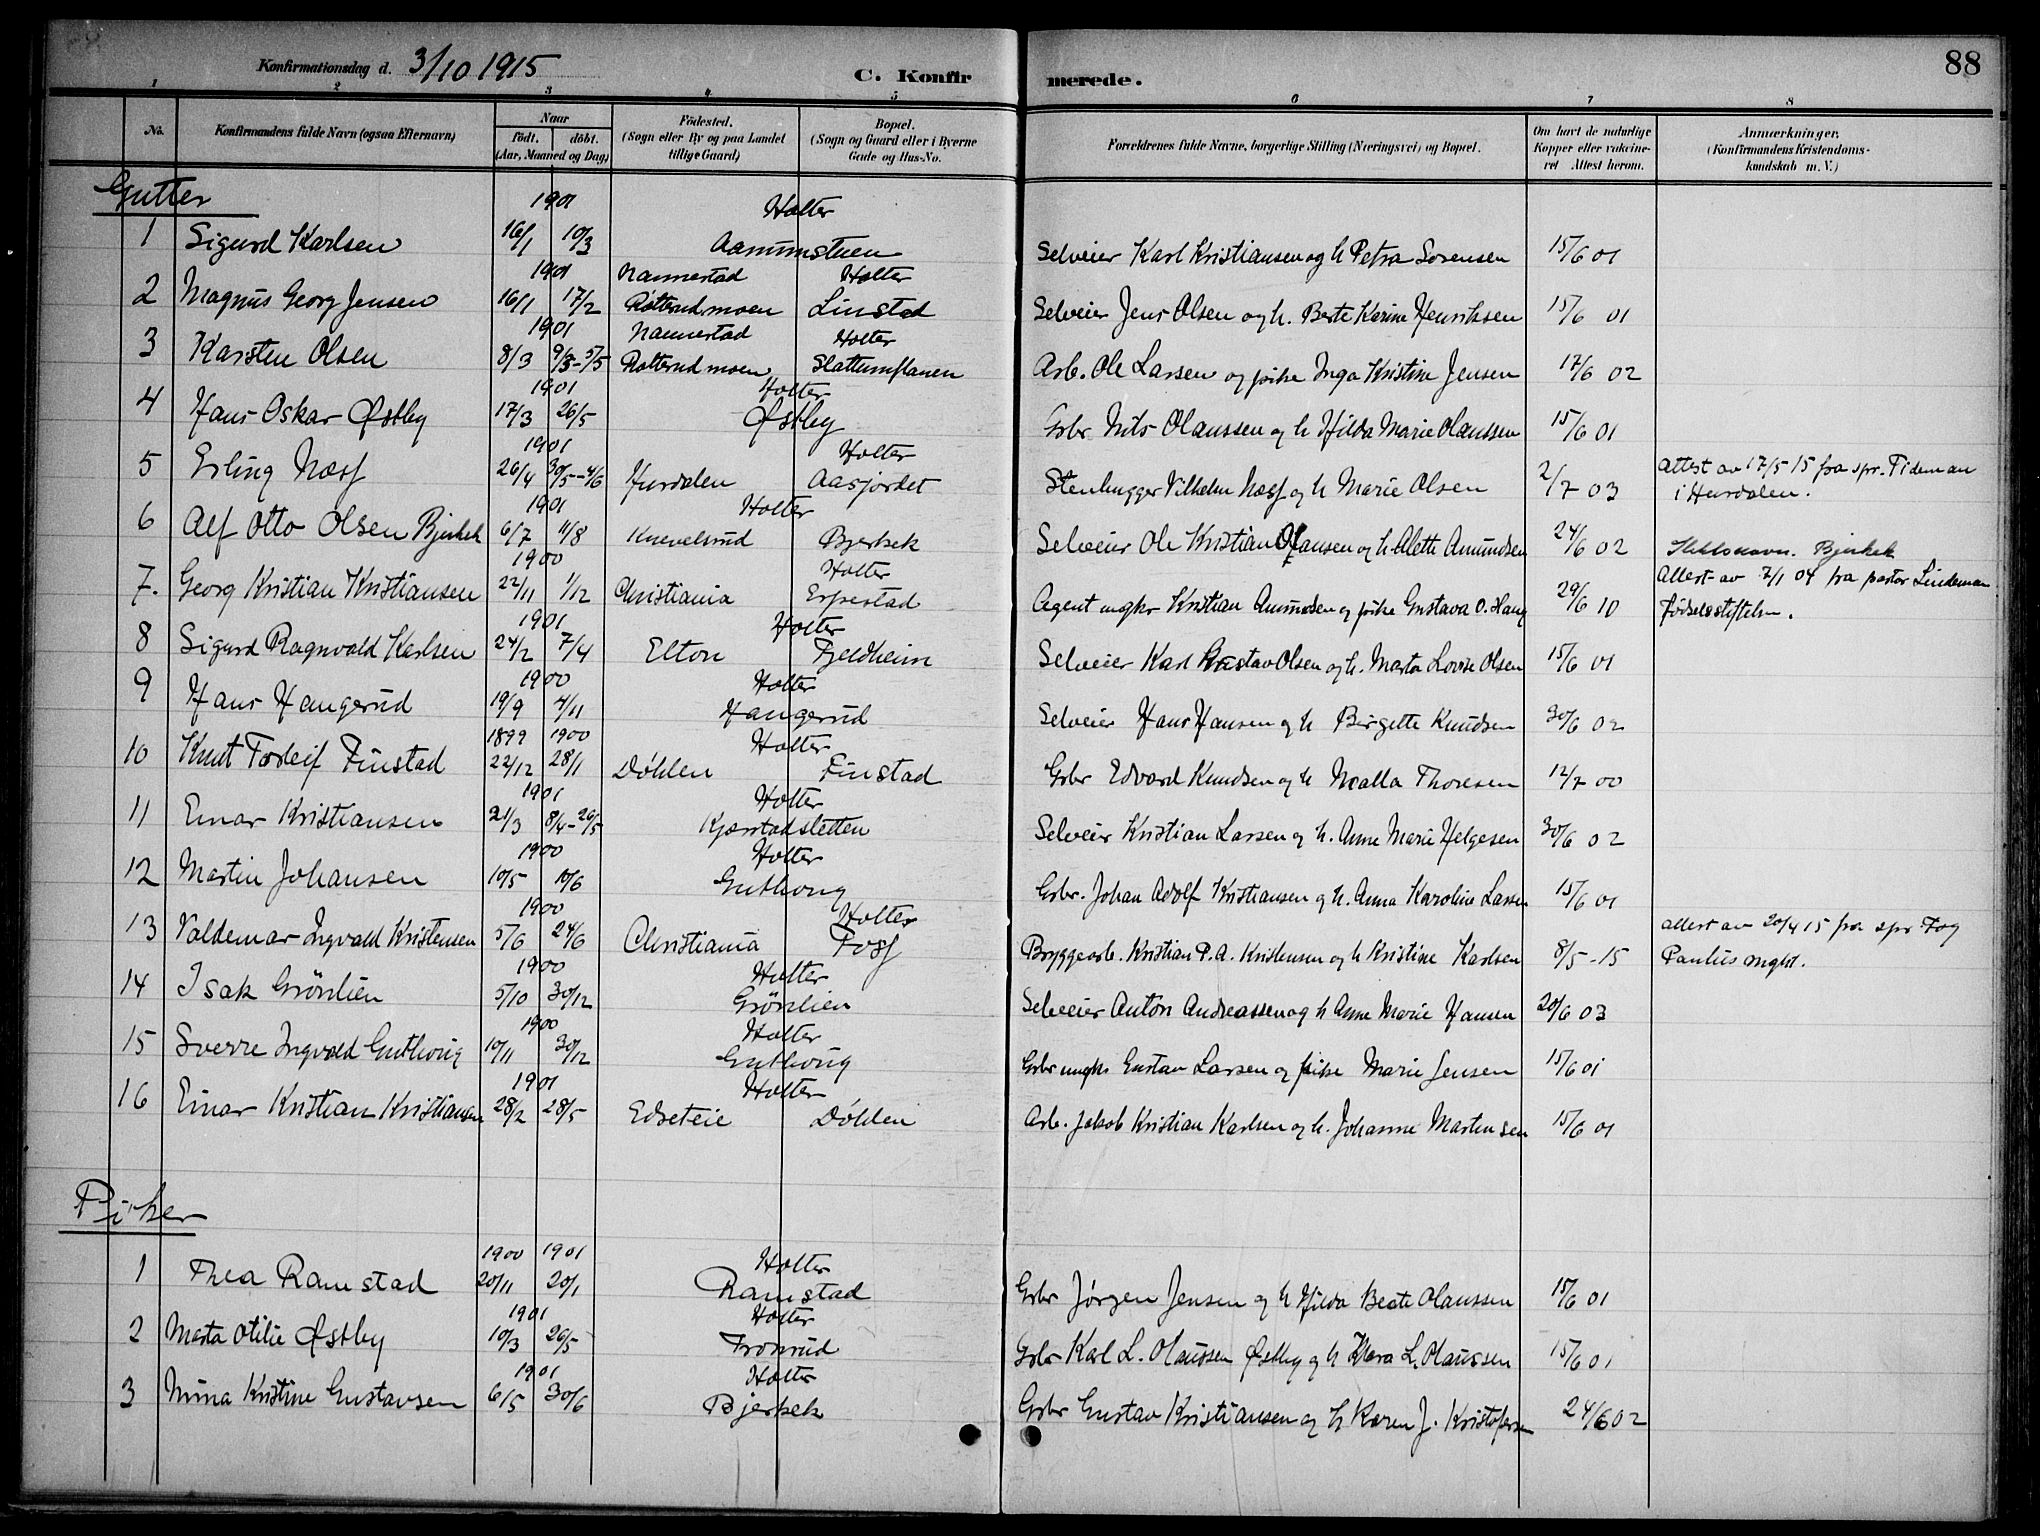 Konfirmationsdag d. 3/10 1915
C. Konfirmerede.
88
1 2 3 4 5 6 7 8
No.
Konfirmandens fulde Navn (ogsaa Efternavn)
Naar
födt. döbt.
(Aar, Maaned og Dag)
Födested.
(Sogn eller By og paa Landet
tillige Gaard)
Bopæl.
(Sogn og Gaard eller i Byerne
Gade og Hus-No.
Forældrenes fulde Navne, borgerlige Stilling (Næringsvei) og Bopæl.
Om havt de naturlige
Kopper eller vakcine-
ret Attest herom.
Anmærkninger,
(Konfirmandens Kristendoms-
kundskab m. V.)
Gutter
1901 Holter
1 Sigurd Karlsen 16/1 10/3 Aamumstuen Selveier Karl Kristiansen og h Petra Sorensen 15/6 01
1901 Nannestad Holter
2 Magnus Georg Jensen 16/1 17/2 Rotterudmoen Linstad Selveier Jens Olsen og h. Berte Karine Henriksen 15/6 01
1901 Nannestad Holter
3 Karsten Olsen 8/3 9/3-5/5 Rotterudmoen Slattumflanen Arb. Ole Larsen og pike Inga Kristine Jensen 17/6 02
1901 Holter
4 Hans Oskar Østby 17/3 26/5 Østby Gbr Nils Olaussen og h Hilda Marie Olaussen 15/6 01
1901 Holter
5 Erling Næss 26/4 30/5-4/6 Hurdalen Aasjordet Stenhugger Vilhelm Næss og h Marie Olsen 2/7 03 Attest av 17/5 15 fra spr. Tideman
i Hurdalen.
1901 Holter
6 Alf Otto Olsen Bjerkek 6/7 11/8 Knevelsrud Bjerkek Selveier Ole Kristian Hansen og h. Alette Amundsen 24/6 02 Bjerkek
1900 Holter
7. Georg Kristian Kristiansen 22/11 1/12 Christiania Erpestad Agent ungkr Kristian Amundsen og pike Gustava O. Haug 29/6 10 Attest av 7/1 04 fra pastor Lindeman
Fødselsstiftelsen.
1901 Holter
8 Sigurd Ragnvald Karlsen 24/2 7/4 Elton Fjeldheim Selveier Karl Gustav Olsen og h. Marta Lovise Olsen 15/6 01
1900 Holter
9 Hans Hangerud 19/9 4/11 Hangerud Selveier Hans Hansen og h Birgette Knudsen 30/6 02
1899 1900 Holter
10 Knut Torleif Finstad 22/12 28/1 Döhlen Finstad Gbr Edvard Knudsen og h Malla Thoresen 12/7 00
1901 Holter
11 Einar Kristiansen 21/3 8/4-26/5 Kjærstadsletten Selveier Kristian Larsen og h. Anne Marie Helgesen 30/6 02
1900 Holter
12 Martin Johansen 10/5 10/6 Guthorig Gbr. Johan Adolf Kristiansen og h. Anna Karoline Larsen 15/6 01
1900 Holter
13 Valdemar Ingvald Kristensen 5/6 24/6 Christiania Foss Bryggearb. Kristian P.A. Kristensen og h Kristine Karlsen 8/5-15 attest av 20/4 15 fra spr Fog
Paulus mght.
1900 Holter
14 Isak Grönlien 5/10 30/12 Grönlien Selveier Anton Andreassen og h Anne Marie Hansen 20/6 03
1900 Holter
15 Sverre Ingvald Guthorig 10/11 30/12 Guthorig Gbr ungk Gustav Larsen og pike Marie Jensen 15/6 01
1901 Holter
16 Einar Kristian Kristiansen 28/2 28/5 Edseteie Döhlen Arb. Jakob Kristian Karlsen og h. Johanne Martensen 15/6 01
Piker
1900 1901 Holter
1 Thea Ramstad 20/11 20/1 Ramstad Gbr Jørgen Jensen og h Hilda Beate Olaussen 15/6 01
1901 Holter
2 Marta Otilie Østby 10/3 26/5 Tronrud Gbr Karl L. Olaussen Østby og h Klara L. Olaussen 15/6 01
1901 Holter
3 Mina Kristine Gustavsen 6/5 30/6 Bjerkek Gbr Gustav Kristiansen og h Karen J. Kristofersen 24/6 02